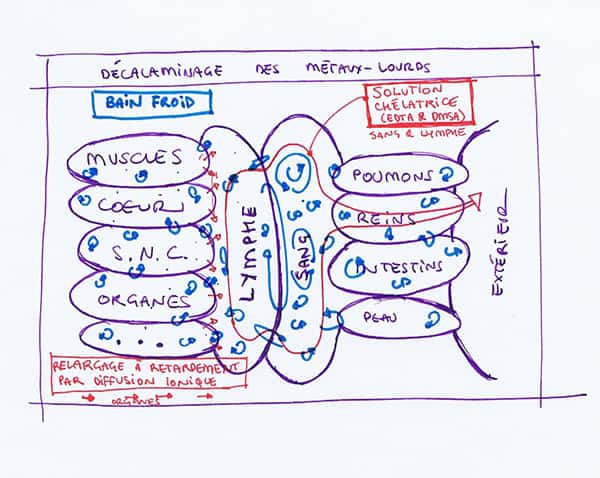 DÉCALAMINAGE DES MÉTAUX-LOURDS
BAIN FROID
SOLUTION
CHÉLATRICE
(EDTA & DMSA)
SANG & LYMPHE
MUSCLES
COEUR
S.N.C.
ORGANES
....
LYMPHE
SANG
POUMONS
REINS
INTESTINS
PEAU
EXTÉRIEUR
RELARGAGE À RETARDEMENT
PAR DIFFUSION IONIQUE
ORGANES